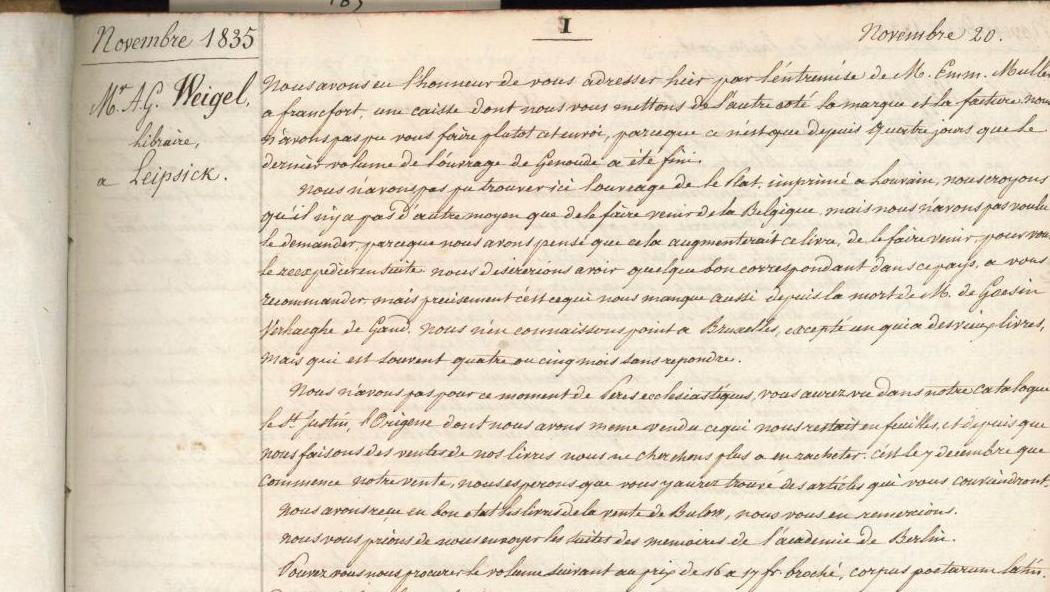 185
Novembre 1835
I
Novembre 20.
Mr. A.G. Weigel,
libraire,
a Leipsick.
Nous avons eu l'honneur de vous adresser hier par l'entremise de M. Emm. Muller
a francfort, une caisse dont nous vous mettons de l'autre coté la marque et la facture nous
n'avons pas pu vous faire plutot cet envoi, parceque ce n'est que depuis quatre jours que le
dernier volume de l'ouvrage de Genoude a été fini.
Nous n'avons pas pu trouver ici l'ouvrage de le Plat, imprimé a Louvain, nous croyons
qu'il n'y a pas d'autre moyen que de le faire venir de la Belgique mais nous n'avons pas voulu
le demander, parceque nous avons pensé que cela augmenterait ce livre, de le faire venir pour vous
le reexpedier ensuite nous desirerions avoir quelque bon correspondant dans ce pays, a vous
recommander, mais precisement c'est ce qui nous manque aussi depuis la mort de M. de Goesin
Verhaeghe de Gand. Nous n'en connaissons point a Bruxelles, excepté un qui a des vieux livres,
mais qui est souvent quatre ou cinq mois sans repondre.
Nous n'avons pas pour ce moment de Peres ecclesiastiques, vous aurez vu dans notre catalogue
le St. Justin, l'Origene dont nous avons meme vendu ce qui nous restait en feuilles, et depuis que
nous faisons des ventes de nos livres nous ne cherchons plus a en racheter. c'est le 7 decembre que
commence notre vente, nous esperons que vous y aurez trouvé des articles qui vous conviendront.
Nous avons reçu en bon etat les livres de la vente de Bulow, nous vous en remercions.
Nous vous prions de nous envoyer les suites des memoires de l'académie de Berlin.
Pouvez vous nous procurer le volume suivant au prix de 16 a 17 fr. broché, corpus poetarum latin.